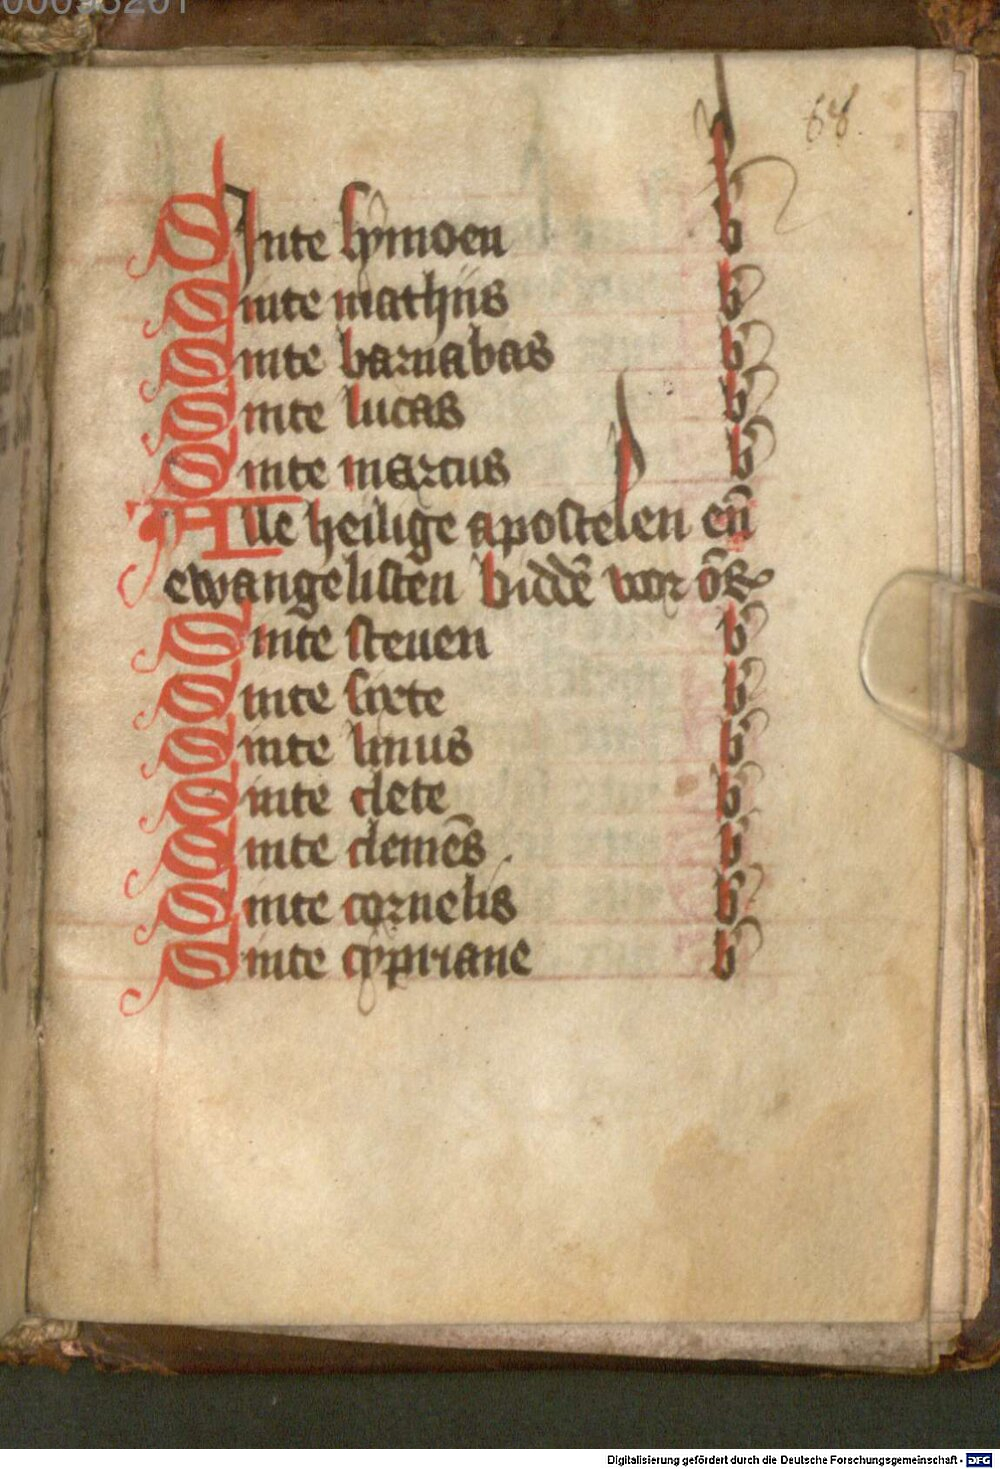 00095201
68.
SInte symoen b
Sinte mathijs b
Sinte barnabas b
Sinte lucas b
Sinte marcus b
Alle heilige apostelen eñ
ewangelisten biddē voor ōs
Sinte steuen b
Sinte sixte b
Sinte linus b
Sinte clete b
Sinte clemēs b
Sinte cornelis b
Sinte cypriane b
Digitalisierung gefördert durch die Deutsche Forschungsgemeinschaft - DFG